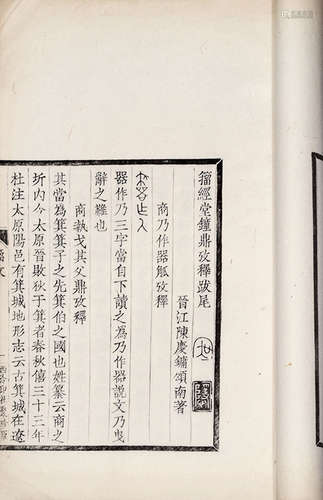 籀經堂鐘鼎攷釋跋尾
晉江陳慶鏞頌南著
商乃作器觚攷釋
器作乃三字當自下讀之為乃作器說文乃曳
辭之難也
商執戈其父鼎攷釋
其當為箕箕子之先箕伯之國也姓纂云商之
圻内今太原晉敗狄于箕者春秋僖三十三年
杜注太原陽邑有箕城地形志云古箕城在遼